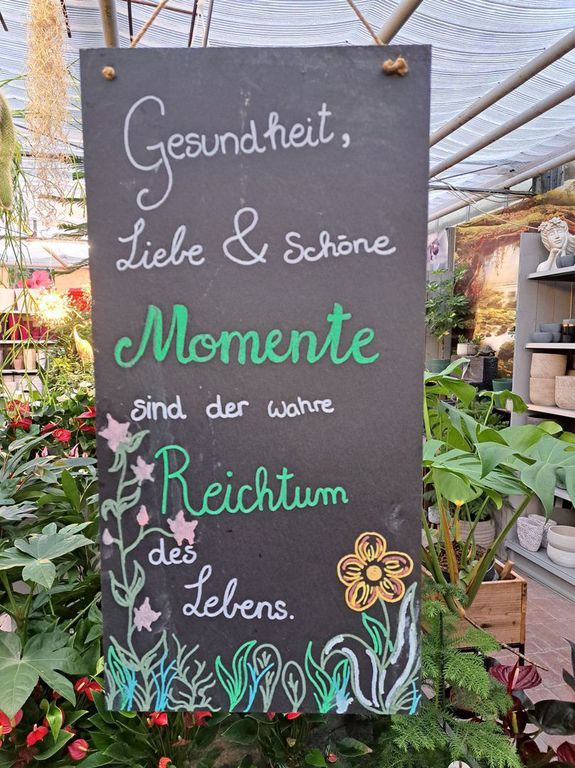 Gesundheit,
Liebe & Schöne
Momente
sind der wahre
Reichtum
des
Lebens.